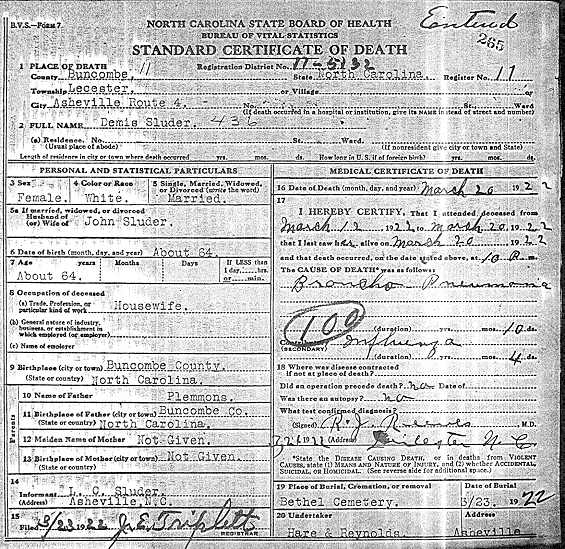 B.V.S.—Form 7.
NORTH CAROLINA STATE BOARD OF HEALTH
BUREAU OF VITAL STATISTICS
STANDARD CERTIFICATE OF DEATH
265
1 PLACE OF DEATH
Registration District No. 11-5132
County Buncombe 11 State North Carolina Register No. 11
Township Lecester. or Village or
City Asheville Route 4. No. St. Ward
(If death occurred in a hospital or institution, give its NAME instead of street and number)
2 FULL NAME Demis Sluder. 436
(a) Residence. No. St. Ward.
(Usual place of abode) (If nonresident give city or town and State)
Length of residence in city or town where death occurred yrs. mos. ds. How long in U. S. if of foreign birth? yrs. mos. ds.
PERSONAL AND STATISTICAL PARTICULARS
3 Sex 4 Color or Race 5 Single, Married, Widowed, or Divorced (write the word)
Female. White. Married.
5a If married, widowed, or divorced
Husband of
(or) Wife of John Sluder.
6 Date of birth (month, day, and year) About 64.
7 Age years Months Days If LESS than
1 day, hrs.
or min.
About 64.
8 Occupation of deceased
(a) Trade, Profession, or
particular kind of work Housewife.
(b) General nature of industry,
business, or establishment in
which employed (or employer)
(c) Name of employer
9 Birthplace (city or town) Buncombe County.
(State or country) North Carolina.
Parents
10 Name of Father Plemmons.
11 Birthplace of Father (city or town) Buncombe Co.
(State or country) North Carolina.
12 Maiden Name of Mother Not Given.
13 Birthplace of Mother (city or town) Not Given.
(State or country)
14
Informant L. O. Sluder.
(Address) Asheville, N.C.
15
Filed 3/23 1922 J. E. Triplett
REGISTRAR
MEDICAL CERTIFICATE OF DEATH
16 Date of Death (month, day, and year) March 20 1922
17
I HEREBY CERTIFY, That I attended deceased from
March 12 1922 to March 20, 1922
that I last saw her alive on March 20 1922
and that death occurred, on the date stated above, at 10 P. m.
The CAUSE OF DEATH* was as follows:
Broncho Pneumonia
100
(duration) yrs. mos. 10 ds.
(SECONDARY) Influenza
(duration) yrs. mos. 4 ds.
18 Where was disease contracted
if not at place of death?
Did an operation precede death? no Date of
Was there an autopsy? no
What test confirmed diagnosis?
(Signed) R. J. Reeves M.D.
1922 (Address) Leicester N. C.
*State the DISEASE CAUSING DEATH, or in deaths from VIOLENT
CAUSES, state (1) MEANS AND NATURE OF INJURY, and (2) whether ACCIDENTAL,
SUICIDAL, OR HOMICIDAL. (See reverse side for additional space.)
19 Place of Burial, Cremation, or removal Date of Burial
Bethel Cemetery. 3/23. 1922
20 Undertaker Address
Hare & Reynolds. Asheville